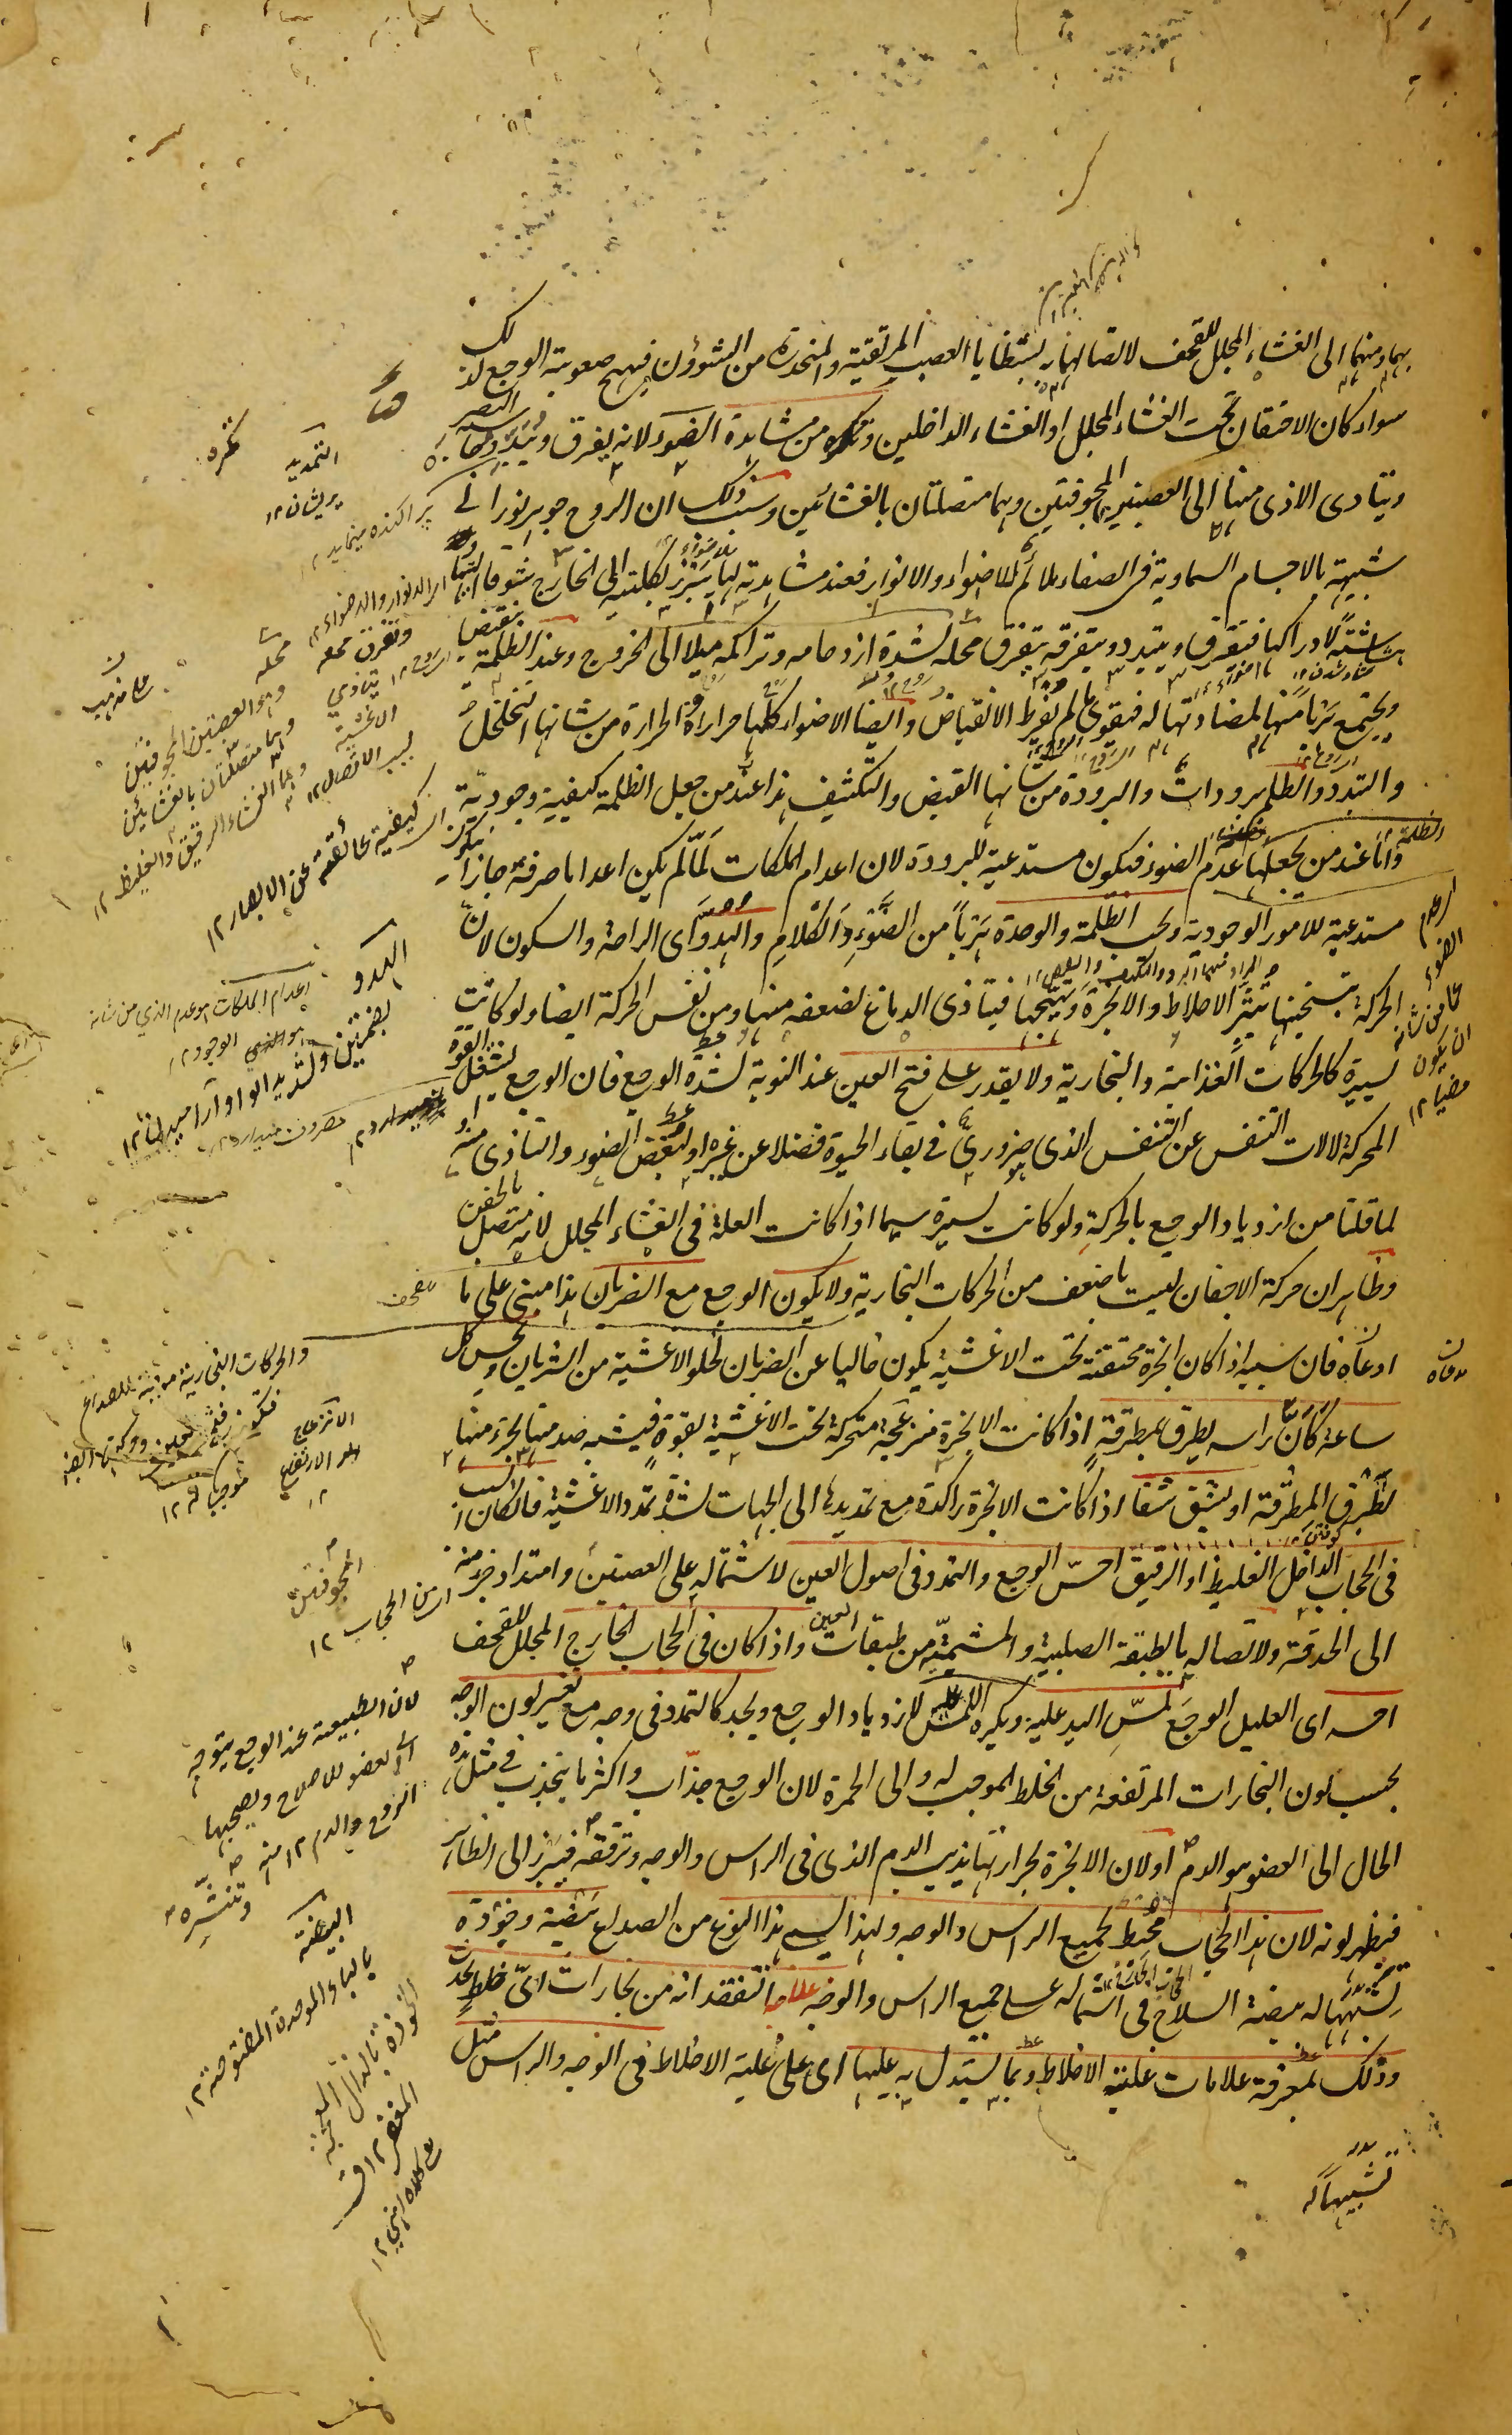 بهما ومنهما الى الغشاء المجلل للقحف لاتصالهما به بشظايا العصب المرتقية والمنحدرة من الشؤون فيهيج صعوبة الوجع لذلك
سواء كان الاحتقان تحت الغشاء المجلل او الغشاء الداخلين وتكره من مشاهدة الضوء لانه يفرق ويبدد روحا
ويتادى الاذى منها الى العصبتين المجوفتين وهما متصلتان بالغشائين وسبب ذلك ان الروح جوهر نورانى
شبيهة بالاجسام السماوية فى الصفاء ملائم للاضواء والانوار فعند مشاهدته لها يبرز بكليته الى الخارج شوقا اليها
بشاشة لادراكها فتفرق ويتبدد وبتفرقه يتفرق محله لشدة ازدحامه وتراكمه ميلا الى الخروج وعند الظلمة ينقبض
ويجتمع هربا منها لمضادتها له فيقوى ما لم يفرط الانقباض وايضا الاضواء كلها حرارة والحرارة من شانها التخلخل
والتبدد والظلم برودات والبرودة من شانها القبض والتكثيف هذا عند من جعل الظلمة كيفية وجودية
واما عند من يجعلها عدم الضوء فيكون مستدعية للبرودة لان اعدام الملكات لما لم يكن اعداما صرفة جاز ان يكون
مستدعية للامور الوجودية ويحب الظلمة والوحدة هربا من الضوء والكلام والهدو اى الراحة والسكون لان
الحركة بتسخينها تثير الاخلاط والابخرة وتهيجها فيتاذى الدماغ لضعفه منها ومن نفس الحركة ايضا ولو كانت
يسيرة كالحركات الغذائية والبخارية ولا يقدر على فتح العين عند النوبة لشدة الوجع فان الوجع يشغل القوة
المحركة لالات التنفس عن التنفس الذى هو ضرورى فى بقاء الحيوة فضلا عن غيره او لبغض الضوء والتاذى منه او
لما قلنا من ازدياد الوجع بالحركة ولو كانت يسيرة سيما اذا كانت العلة فى الغشاء المجلل لانه متصل بالجفن
وظاهر ان حركة الاجفان ليست باضعف من الحركات البخارية ولا يكون الوجع مع الضربان هذا مبنى على ما
ادعاه فان سببه اذا كان ابخرة محتقنة تحت الاغشية يكون خاليا عن الضربان لخلو الاغشية من الشريان ويحس كل
ساعة كان راسه يطرق بمطرقة اذا كانت الابخرة منزعجة متحركة تحت الاغشية بقوة فيشبه صدمتها لجزء منها
بطرق المطرقة او يشق شقا اذا كانت الابخرة راكدة مع تمديدها الى الجهات لشدة تمدد الاغشية فان كان السبب
فى الحجاب الداخل الغليظ او الرقيق احس الوجع والتمدد فى اصول العين لاشتماله على العصبتين وامتداد جزء منه
الى الحدقة ولاتصاله بالطبقة الصلبية والمشيمية من طبقات العين واذا كان فى الحجاب الخارج المجلل للقحف
احس اى العليل الوجع لمس اليد عليه ويكره اللمس لازدياد الوجع ويجد كالتمدد فى وجهه مع تغير لون الوجه
بحسب لون البخارات المرتفعة من الخلط الموجب له والى الحمرة لان الوجع جذاب واكثر ما ينجذب فى مثل هذه
الحال الى العضو هو الدم او لان الابخرة لحرارتها يذيب الدم الذى فى الراس والوجه وترققه فيبرز الى الظاهر
فيظهر لونه لان هذا الحجاب محيط بجميع الراس والوجه ولهذا يسمى هذا النوع من الصداع بيضة وخوذة
تشبيها له ببيضة السلاح فى اشتماله على جميع الراس والوجه علاجها تتفقد انه من بخارات اى خلط يحدث
وذلك بمعرفة علامات غلبة الاخلاط وبما يستدل به عليها اى على غلبة الاخلاط فى الوجه والراس مثل
تشبيها له
تكره
التمديد
پریشان ١٢
پراكنده مينمايد
وهو العصبتين المجوفتين
وهما متصلتان بالغشائين
وهما الغشاء الرقيق والغليظ ١٢
كيفية عائقة عن الابصار ١٢
الهدو
بضمتين وتشديد الواو آراميدن ١٢
اعدام الملكات هو عدم الذي من شانه
الوجود
عما من شانه
ان يكون
مضيا ١٢
والحركات البخارية موجبة للصداع
الانزعاج
المجوفتين
اى من الحجاب ١٢
لان الطبيعة عند الوجع يتوجه
الى العضو للاصلاح ويصحبها
الروح والدم ١٢ منه
البيضة
بالباء الموحدة المفتوحة ١٢
الخوذة بالذال المعجمة
المغفر